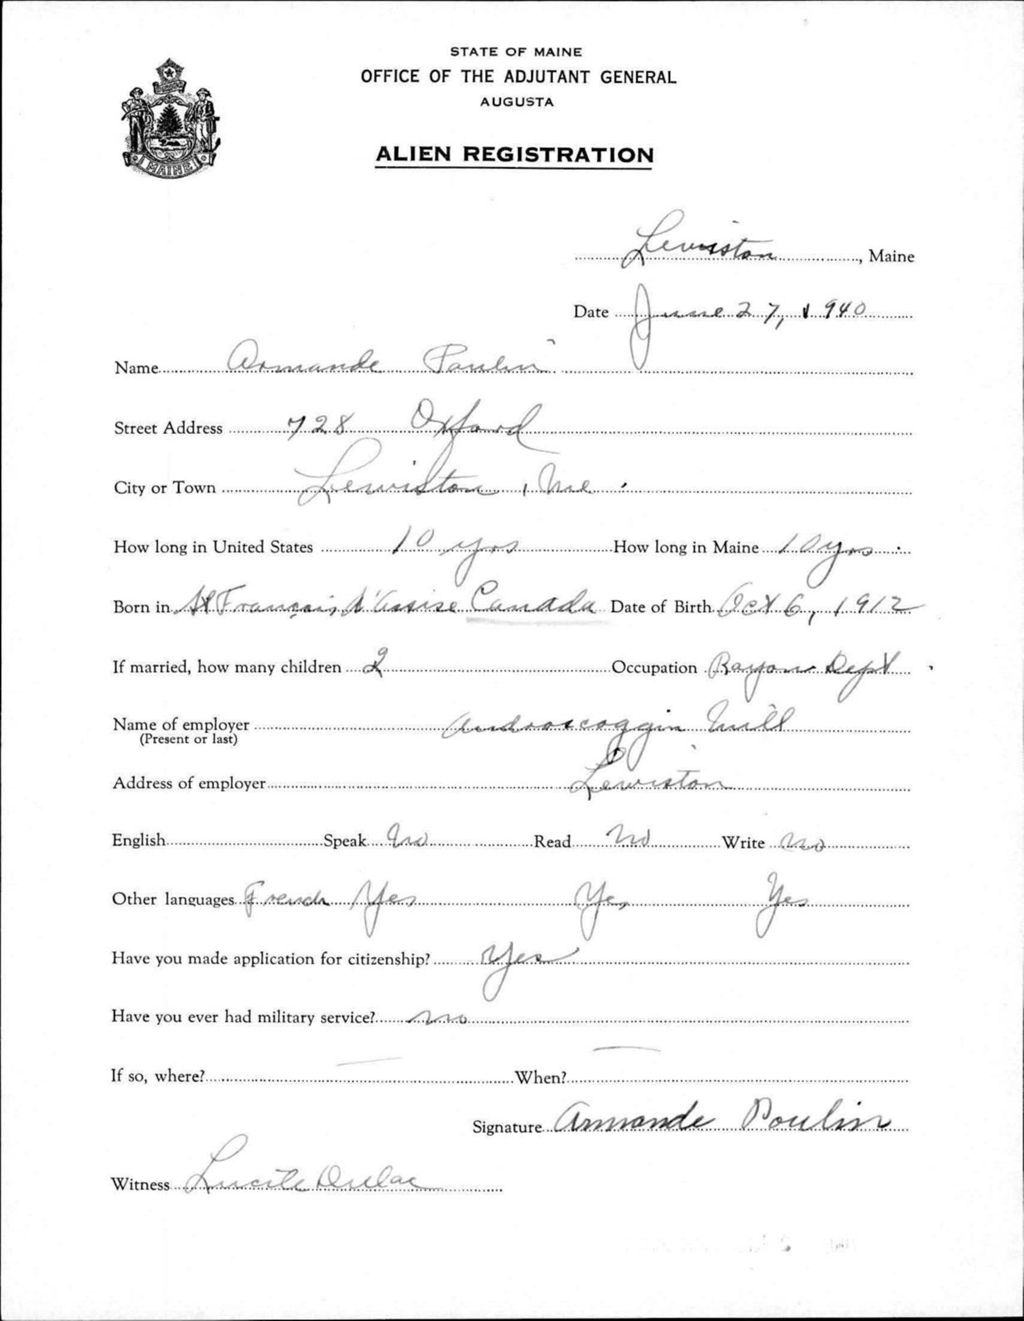 STATE OF MAINE
OFFICE OF THE ADJUTANT GENERAL
AUGUSTA
ALIEN REGISTRATION
MAINE
Lewiston, Maine
Date June 27, 1940
Name Armande Poulin
Street Address 728 Oxford
City or Town Lewiston, Me.
How long in United States 10 yrs How long in Maine 10 yrs.
Born in St François d'Assise Canada Date of Birth Oct 6, 1912
If married, how many children 2 Occupation Rayon Dept.
Name of employer Androscoggin Mill
(Present or last)
Address of employer Lewiston
English Speak No Read No Write No
Other languages French Yes Yes Yes
Have you made application for citizenship? Yes
Have you ever had military service? no
If so, where? — When? —
Signature Armande Poulin
Witness Lucile Dulac